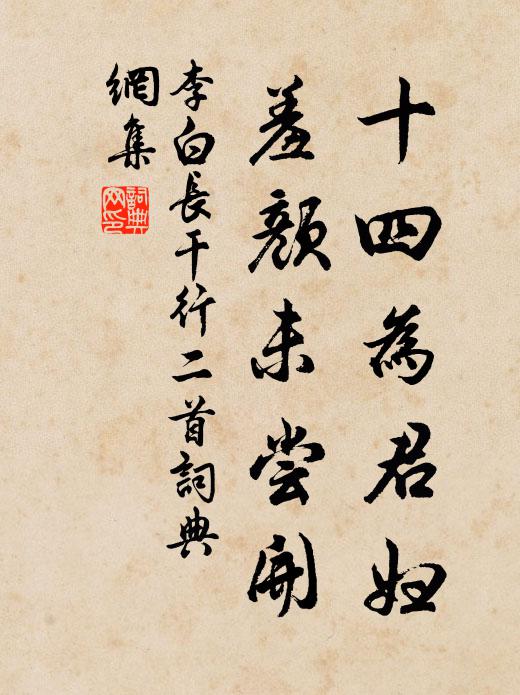 十四為君婦
羞顏未嘗開
李白長干行二首詞典
網集
詞典
网印